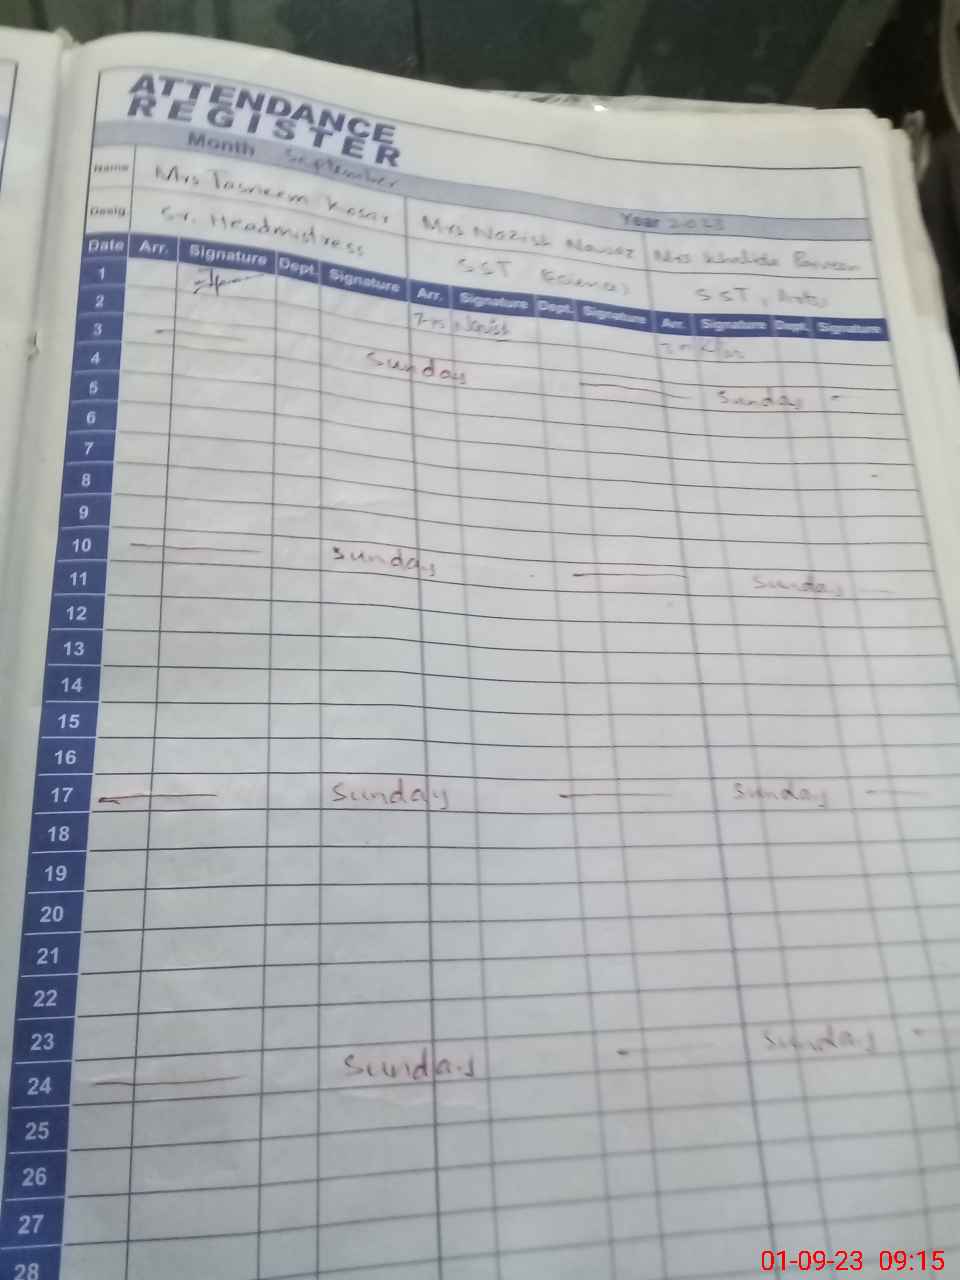 ATTENDANCE
REGISTER
Month September Year 2023
Name Mrs Tasneem Kosar Mrs Nazish Nawaz Mrs Khalida Parveen
Desig. Sr. Headmistress SST Science SST, Arts
Date Arr. Signature Dept. Signature Arr. Signature Dept. Signature Arr. Signature Dept. Signature
1 Nazish
2
3 Sunday Sunday
4
5
6
7
8
9
10 Sunday Sunday
11
12
13
14
15
16
17 Sunday Sunday
18
19
20
21
22
23
24 Sunday Sunday
25
26
27
28
01-09-23 09:15